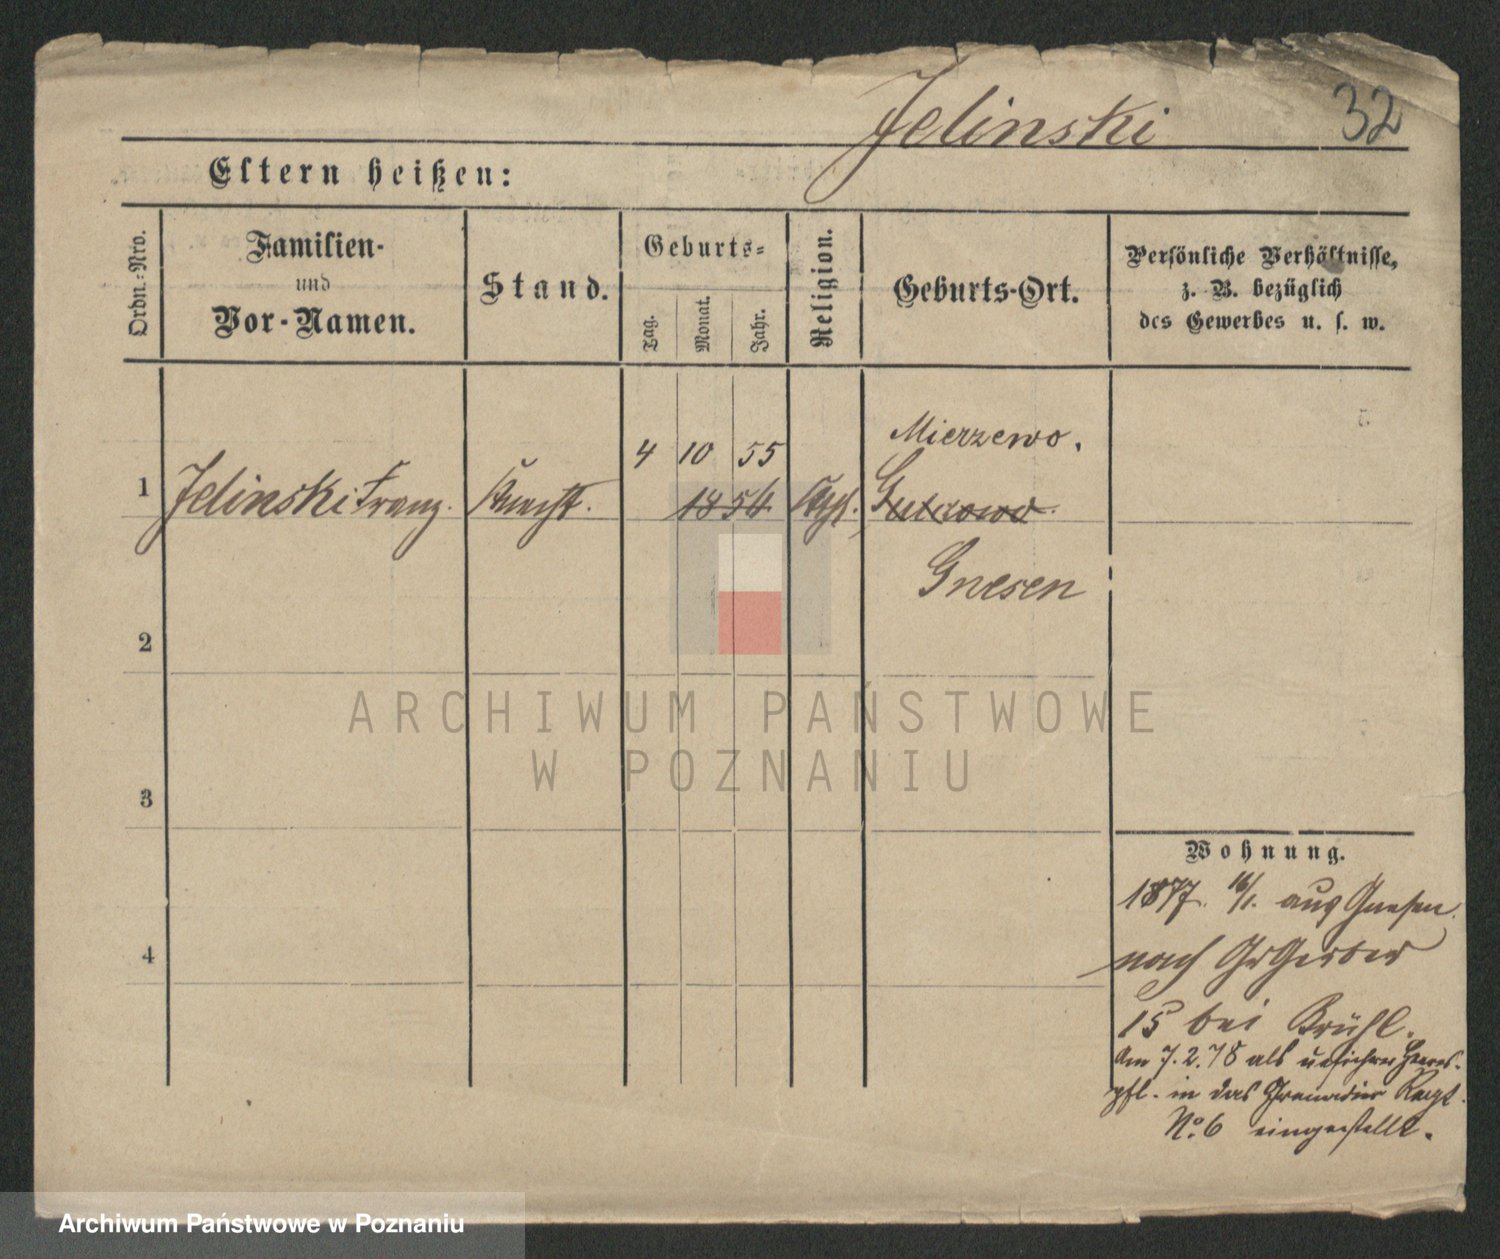 Jelinski 32
Eltern heißen:
Ordn.-Nro.
Familien-
und
Vor-Namen.
Stand.
Geburts-
Tag.
Monat.
Jahr.
Religion.
Geburts-Ort.
Persönliche Verhältnisse,
z. B. bezüglich
des Gewerbes u. s. w.
Mierzewo.
4 10 55
1 Jelinski Franz. Knecht. 1854 Kath.
Gnesen
2
3
4
Wohnung.
1877. 16/1. aus Gnesen
nach Gr Gerber
15 bei Krühl.
Am 7.2.78 als Heeres-
pfl. in das Grenadier Regt.
No. 6 eingestellt.
ARCHIWUM PAŃSTWOWE
W POZNANIU
Archiwum Państwowe w Poznaniu